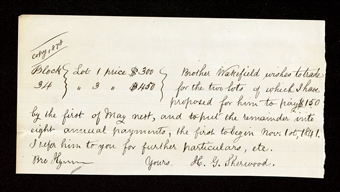 copy, 1841
Block { Lot 1 price $300 } Brother Wakefield wishes to trade
34 { " 3 " $450 } for the two lots of which I have
proposed for him to pay $150
by the first of May next, and to put the remainder into
eight annual payments, the first to begin Nov. 1st, 1841.
I refer him to you for further particulars, etc.
Bro Yours. H. G. Sherwood.